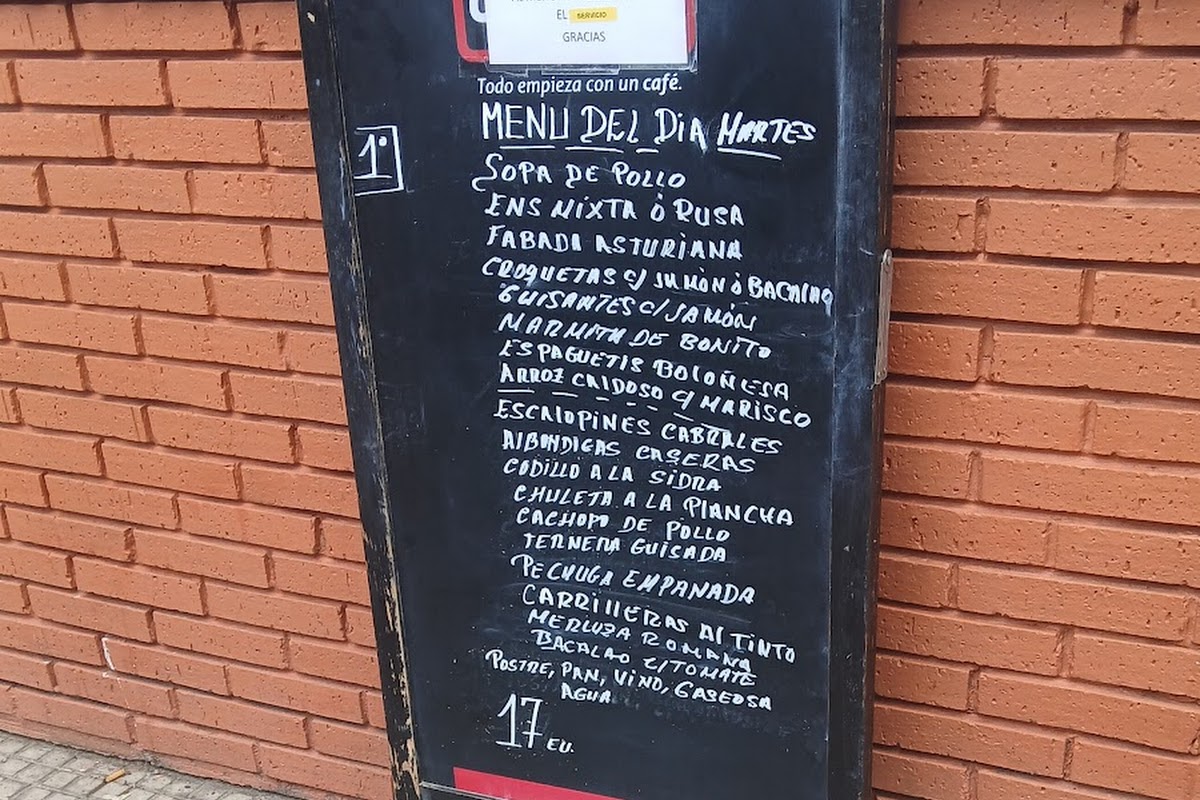 EL SERVICIO
GRACIAS
Todo empieza con un café.
MENU DEL DIA MARTES
1º
SOPA DE POLLO
ENS MIXTA Ó RUSA
FABADA ASTURIANA
CROQUETAS C/ JAMÓN Ó BACALAO
GUISANTES C/ JAMÓN
MARMITA DE BONITO
ESPAGUETIS BOLOÑESA
ARROZ CALDOSO C/ MARISCO
ESCALOPINES CABRALES
ALBONDIGAS CASERAS
CODILLO A LA SIDRA
CHULETA A LA PLANCHA
CACHOPO DE POLLO
TERNERA GUISADA
PECHUGA EMPANADA
CARRILLERAS AL TINTO
MERLUZA ROMANA
BACALAO C/ TOMATE
POSTRE, PAN, VINO, GASEOSA
AGUA
17 EU.